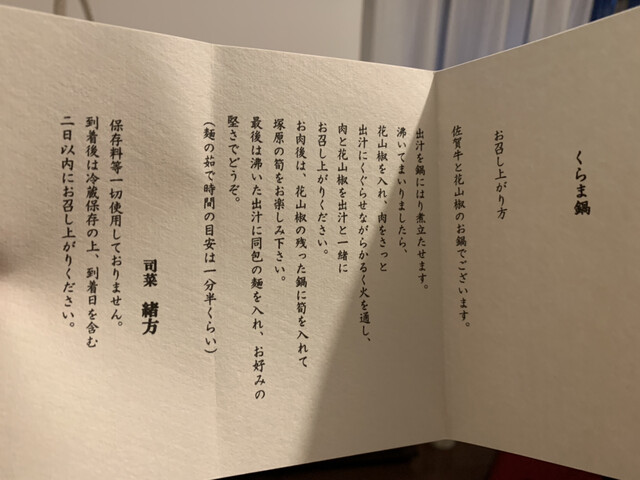 くらま鍋
お召し上がり方
佐賀牛と花山椒のお鍋でございます。
出汁を鍋にはり煮立たせます。
沸いてまいりましたら、
花山椒を入れ、肉をさっと
出汁にくぐらせながらかるく火を通し、
肉と花山椒を出汁と一緒に
お召し上がりください。
お肉後は、花山椒の残った鍋に筍を入れて
塚原の筍をお楽しみ下さい。
最後は沸いた出汁に同包の麺を入れ、お好みの
堅さでどうぞ。
(麺の茹で時間の目安は一分半くらい)
司菜 緒方
保存料等一切使用しておりません。
到着後は冷蔵保存の上、到着日を含む
二日以内にお召し上がりください。